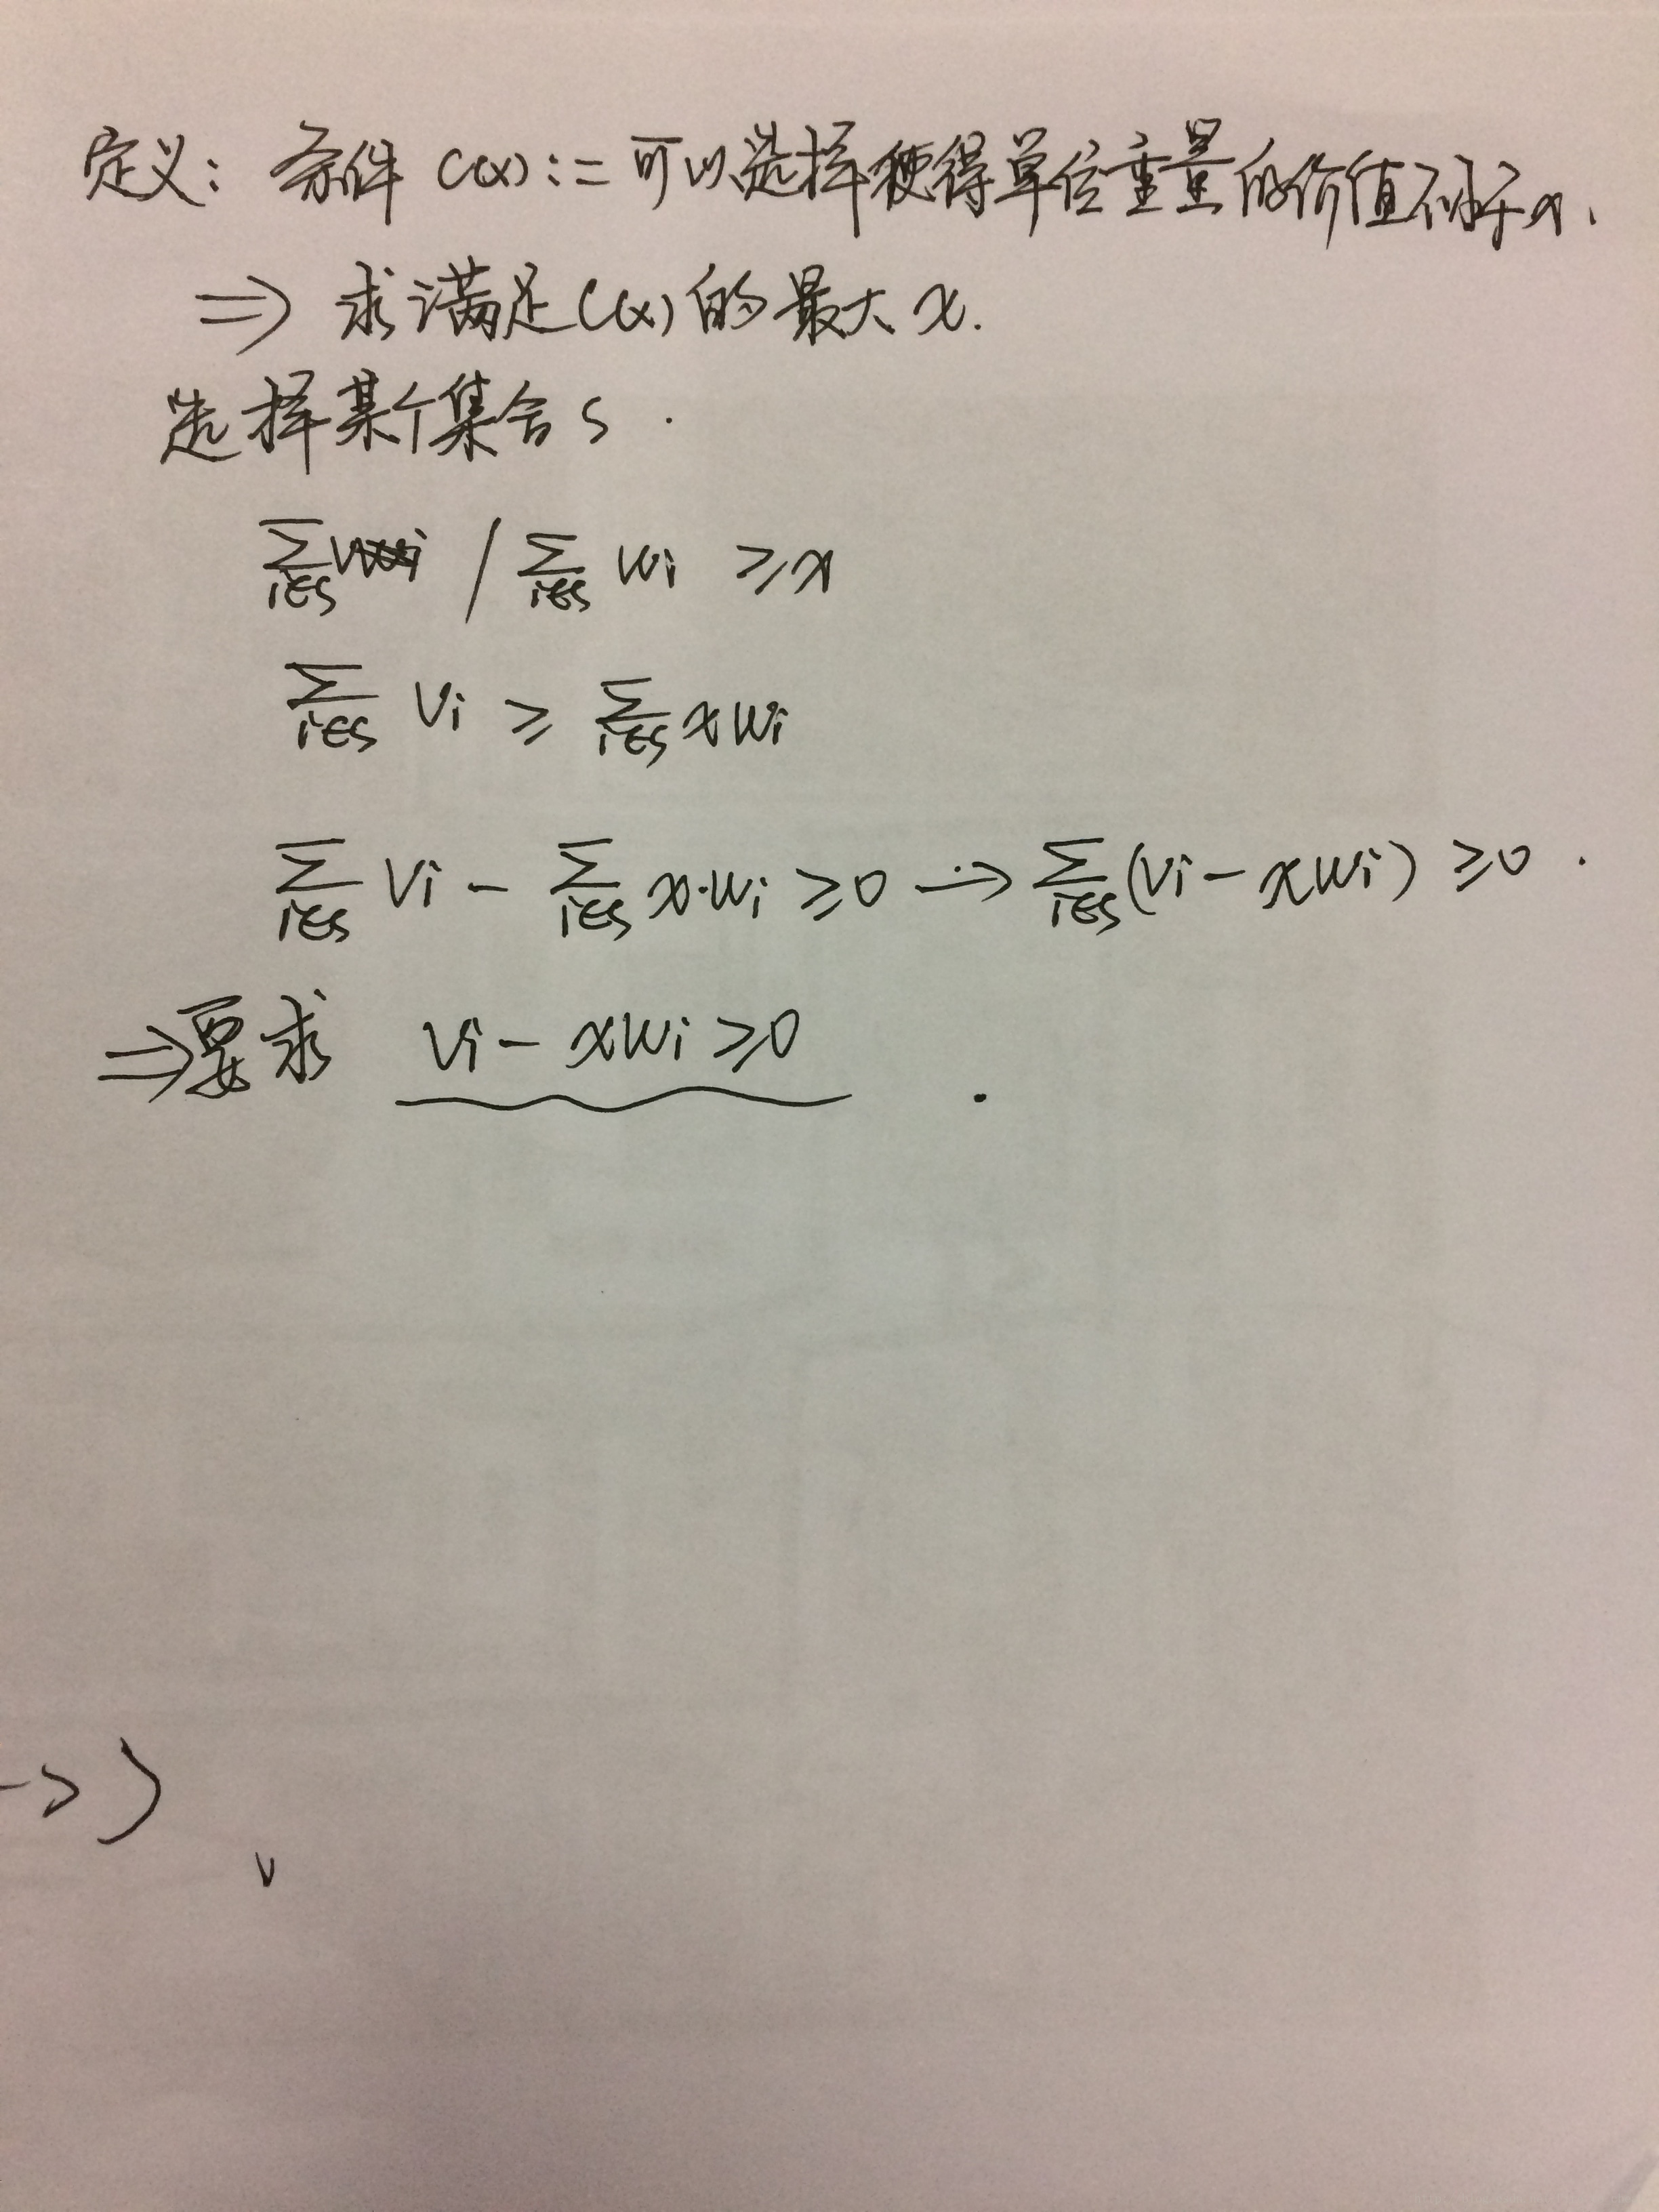 定义: 条件 C(x) := 可以选择使得单位重量的价值不小于x.
⇒ 求满足C(x)的最大x.
选择某个集合S.
∑i∈S / ∑i∈S wi ≥x
∑i∈S Vi ≥ ∑i∈S xwi
∑i∈S Vi - ∑i∈S x·wi ≥0 → ∑i∈S (Vi - xwi) ≥0.
⇒要求 Vi - xwi ≥0.
→)
v